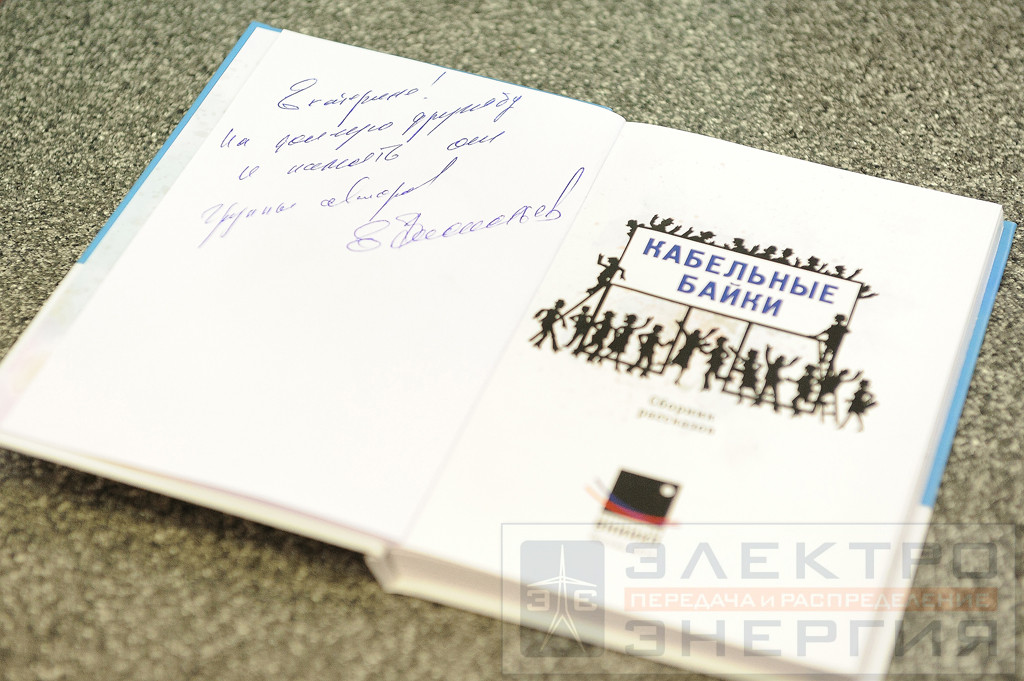 Екатерина!
На долгую дружбу
и память от
группы авторов
КАБЕЛЬНЫЕ
БАЙКИ
Сборник
рассказов
ЭЛЕКТРО
ПЕРЕДАЧА И РАСПРЕДЕЛЕНИЕ
ЭНЕРГИЯ